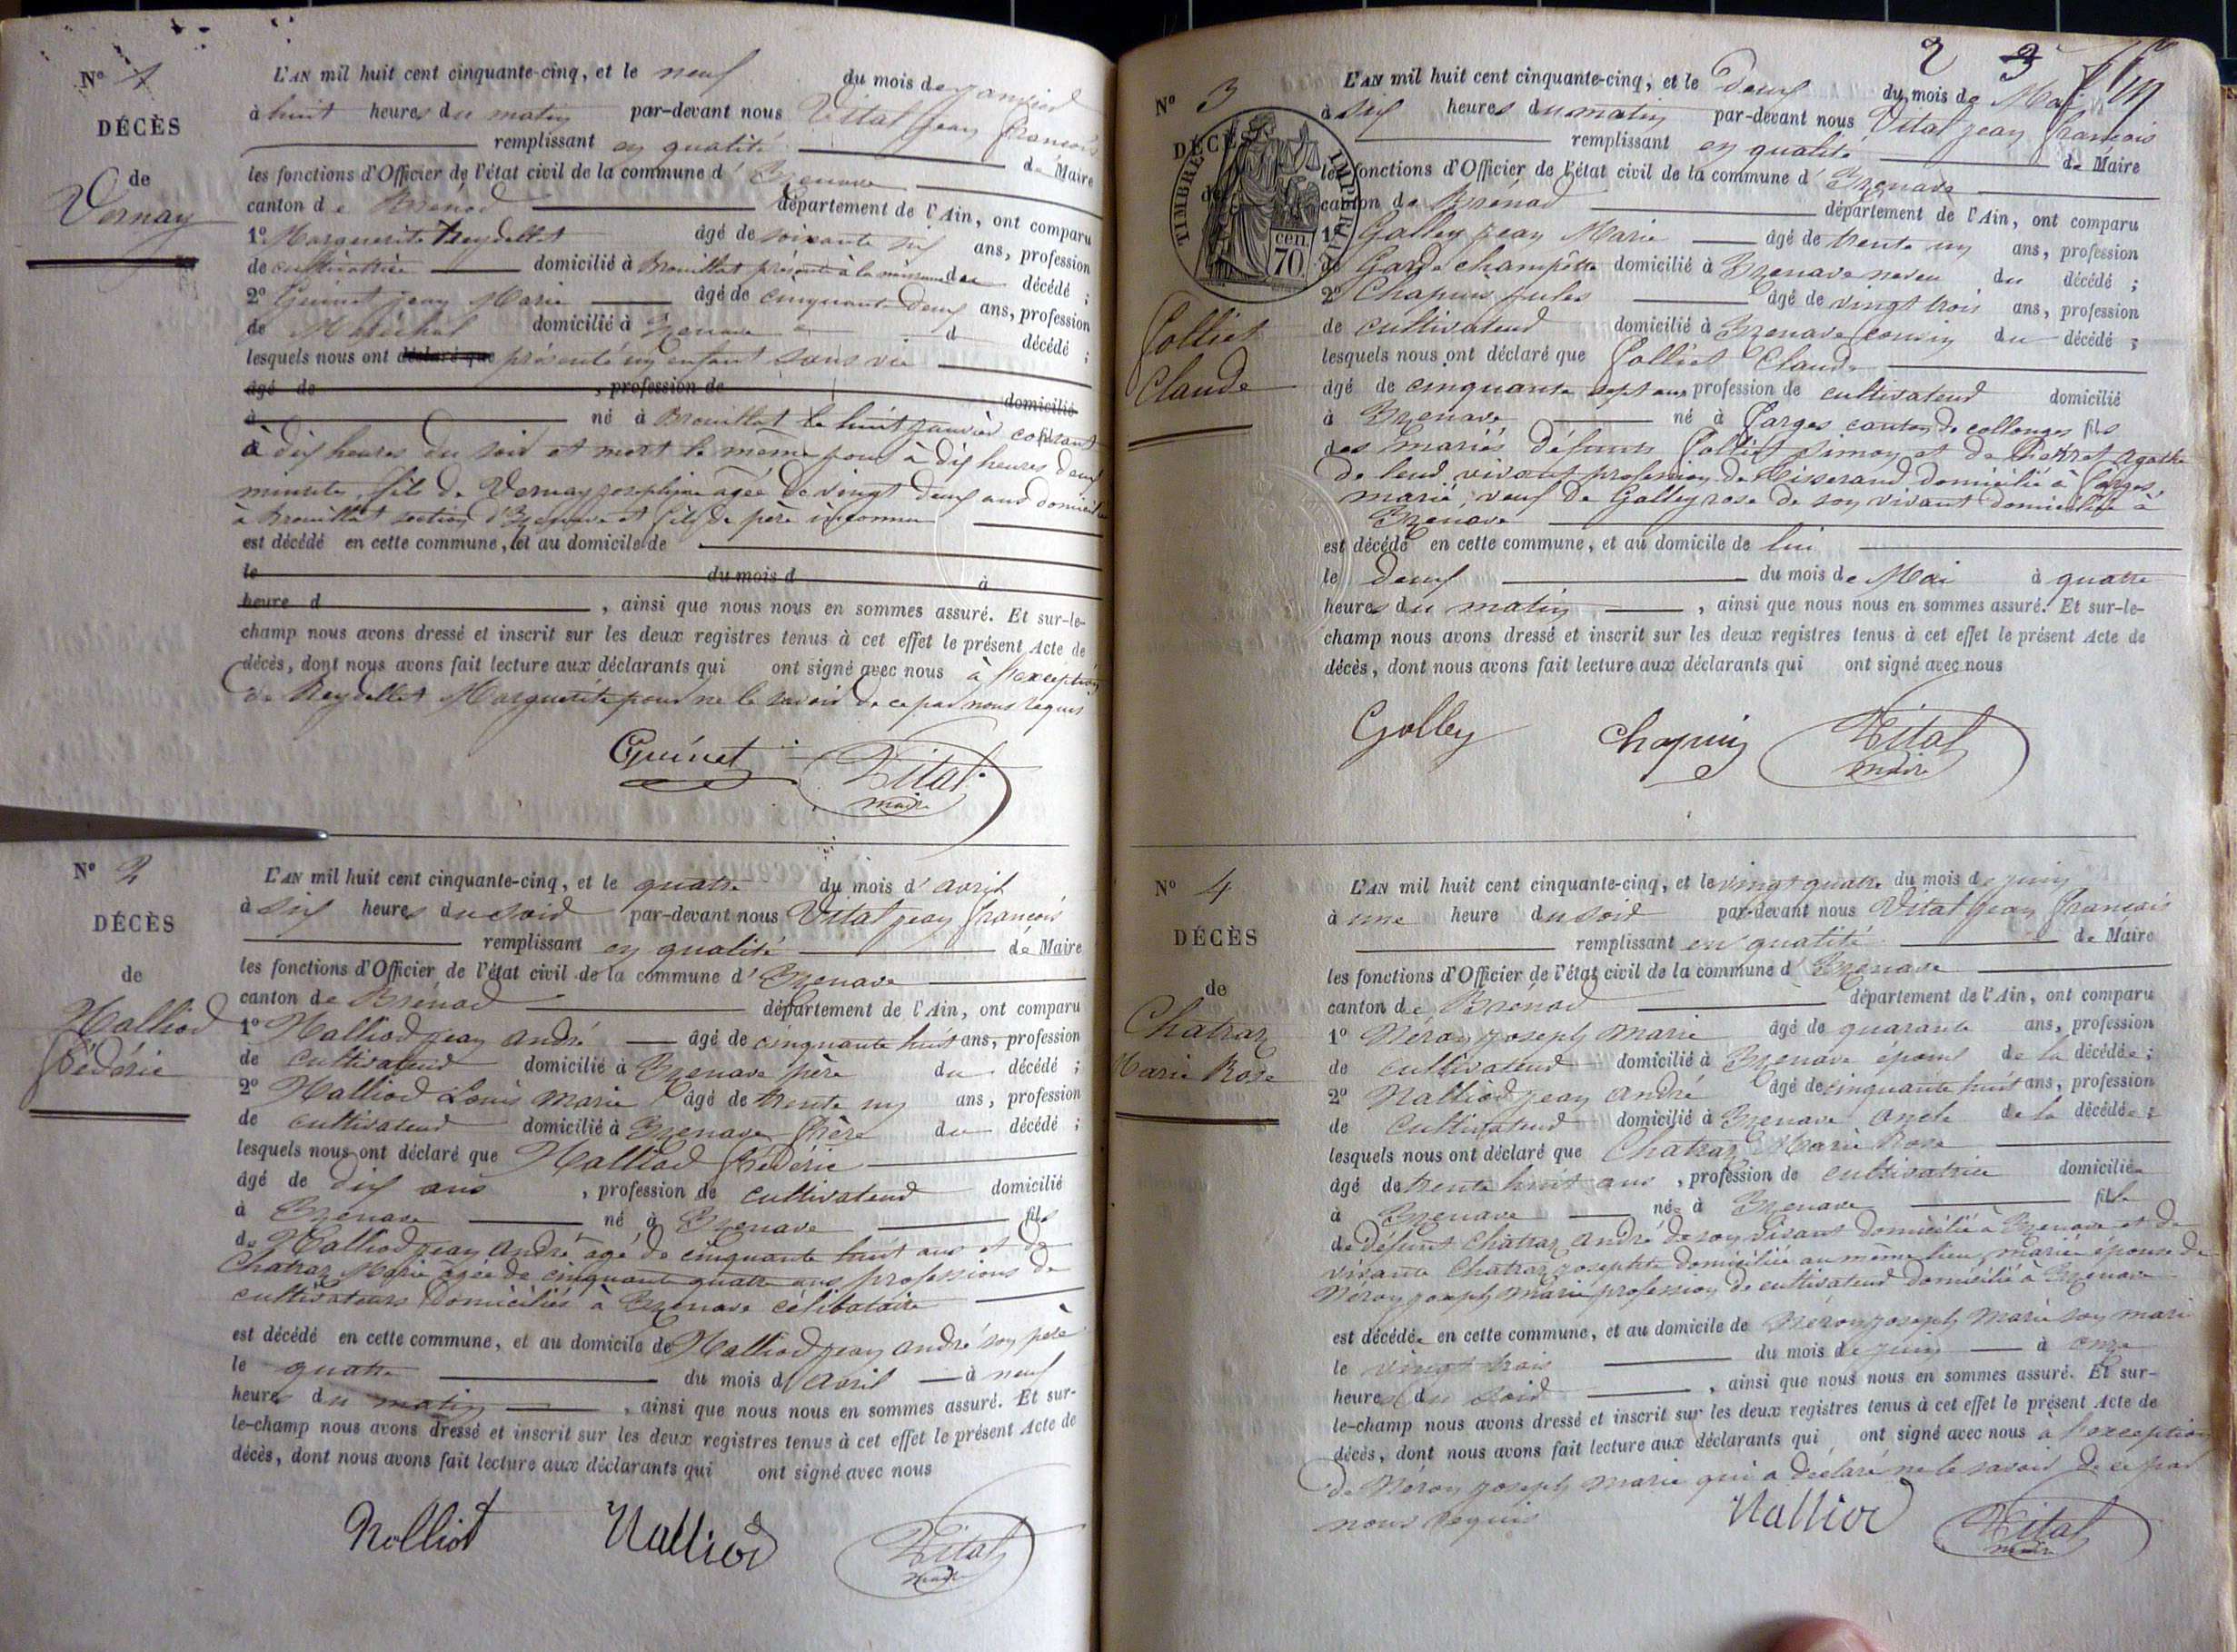 N° 1
DÉCÈS
de
Vernay
L'AN mil huit cent cinquante-cinq, et le neuf du mois de janvier
à huit heures du matin par-devant nous Vital jean françois
remplissant en qualité de Maire
les fonctions d'Officier de l'état civil de la commune d' Izenave
canton de Brénod département de l'Ain, ont comparu
1° Marguerite Reydellet âgé de soixante six ans, profession
de cultivatrice domicilié à Brouillat présente à la naissance du décédé ;
2° Guinet jean Marie âgé de cinquante deux ans, profession
de Maréchal domicilié à Izenave d décédé ;
lesquels nous ont déclaré que présenté un enfant sans vie
âgé de , profession de domicilié
à né à Brouillat le huit janvier courant
à dix heures du soir et mort le même jour à dix heures deux
minutes, fils de Vernay josephine agée de vingt deux ans domiciliée
à Brouillat section d'Izenave et fils de père inconnu
est décédé en cette commune, et au domicile de
le du mois d à
heure d , ainsi que nous nous en sommes assuré. Et sur-le-
champ nous avons dressé et inscrit sur les deux registres tenus à cet effet le présent Acte de
décès, dont nous avons fait lecture aux déclarants qui ont signé avec nous à l'exception
de Reydellet Marguerite pour ne le savoir de ce par nous requis
Guinet Vital
maire
N° 2
DÉCÈS
de
Nalliod
fédéric
L'AN mil huit cent cinquante-cinq, et le quatre du mois d' avril
à six heures du soir par-devant nous Vital jean françois
remplissant en qualité de Maire
les fonctions d'Officier de l'état civil de la commune d' Izenave
canton de Brénod département de l'Ain, ont comparu
1° Nalliod jean andré âgé de cinquante huit ans, profession
de cultivateur domicilié à Izenave père du décédé ;
2° Nalliod Louis marie âgé de trente un ans, profession
de cultivateur domicilié à Izenave frère du décédé ;
lesquels nous ont déclaré que Nalliod fédéric
âgé de dix ans , profession de cultivateur domicilié
à Izenave né à Izenave fils
de Nalliod jean andré agé de cinquante huit ans et de
Chatraz Marie agée de cinquante quatre ans professions de
cultivateurs domiciliés à Izenave célibataire
est décédé en cette commune, et au domicile de Nalliod jean andré son père
le quatre du mois d' avril à neuf
heures du matin , ainsi que nous nous en sommes assuré. Et sur-
le-champ nous avons dressé et inscrit sur les deux registres tenus à cet effet le présent Acte de
décès, dont nous avons fait lecture aux déclarants qui ont signé avec nous
Nalliot Nalliod Vital
maire
2 3
N° 3
DÉCÈS
de
TIMBRE IMPERIAL
70 cen.
Colliet
Claude
L'AN mil huit cent cinquante-cinq, et le Deux du mois de Mai
à six heures du matin par-devant nous Vital jean françois
remplissant en qualité de Maire
les fonctions d'Officier de l'état civil de la commune d' Izenave
canton de Brénod département de l'Ain, ont comparu
1° Golley jean Marie âgé de trente un ans, profession
de Garde champêtre domicilié à Izenave neveu du décédé ;
2° Chapuis jules âgé de vingt trois ans, profession
de cultivateur domicilié à Izenave cousin du décédé ;
lesquels nous ont déclaré que Colliet Claude
âgé de cinquante sept ans profession de cultivateur domicilié
à Izenave né à farges canton de collonges fils
des mariés défunts Colliet Simon et de agathe
de leur vivant profession de Tisserand domicilié à farges,
marié, veuf de Golley rose de son vivant domiciliée à
Izenave
est décédé en cette commune, et au domicile de lui
le deux du mois de Mai à quatre
heures du matin , ainsi que nous nous en sommes assuré. Et sur-le-
champ nous avons dressé et inscrit sur les deux registres tenus à cet effet le présent Acte de
décès, dont nous avons fait lecture aux déclarants qui ont signé avec nous
Golley Chapuis Vital
maire
N° 4
DÉCÈS
de
Chatraz
Marie Rose
L'AN mil huit cent cinquante-cinq, et le vingt quatre du mois de juin
à une heure du soir par-devant nous Vital jean françois
remplissant en qualité de Maire
les fonctions d'Officier de l'état civil de la commune d' Izenave
canton de Brénod département de l'Ain, ont comparu
1° Néron joseph marie âgé de quarante ans, profession
de cultivateur domicilié à Izenave époux de la décédée ;
2° Nalliod jean andré âgé de cinquante huit ans, profession
de cultivateur domicilié à Izenave oncle de la décédée ;
lesquels nous ont déclaré que Chatraz Marie Rose
âgé de trente huit ans , profession de cultivatrice domiciliée
à Izenave née à Izenave fille
de défunt Chatraz andré de son vivant domicilié à Izenave et de
vivante Chatraz josephte domiciliée au même lieu, mariée épouse de
Néron joseph marie profession de cultivateur domicilié à Izenave
est décédée en cette commune, et au domicile de Néron joseph Marie son mari
le vingt trois du mois de juin à onze
heures du soir , ainsi que nous nous en sommes assuré. Et sur-
le-champ nous avons dressé et inscrit sur les deux registres tenus à cet effet le présent Acte de
décès, dont nous avons fait lecture aux déclarants qui ont signé avec nous à l'exception
de Néron joseph marie qui a déclaré ne le savoir de ce par
nous requis Nalliod Vital
maire